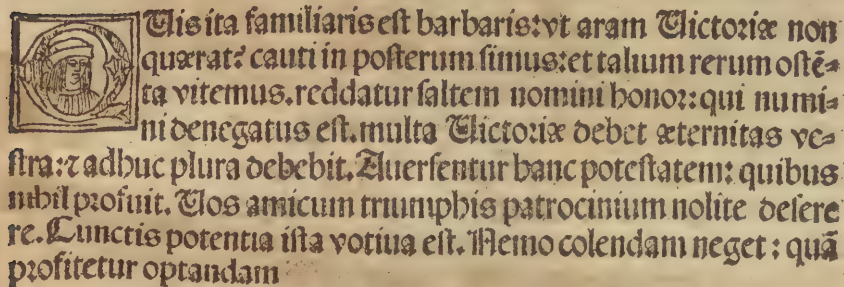 QUis ita familiaris est barbaris: vt aram Victoriæ non
quærat? cauti in posterum simus: et talium rerum ostē-
ta vitemus. reddatur saltem nomini honor: qui numi-
ni denegatus est. multa Victoriæ debet æternitas ve-
stra: ⁊ adhuc plura debebit. Auersentur hanc potestatem: quibus
nihil profuit. Vos amicum triumphis patrocinium nolite desere
re. Cunctis potentia ista votiua est. Nemo colendam neget: quā
profitetur optandam